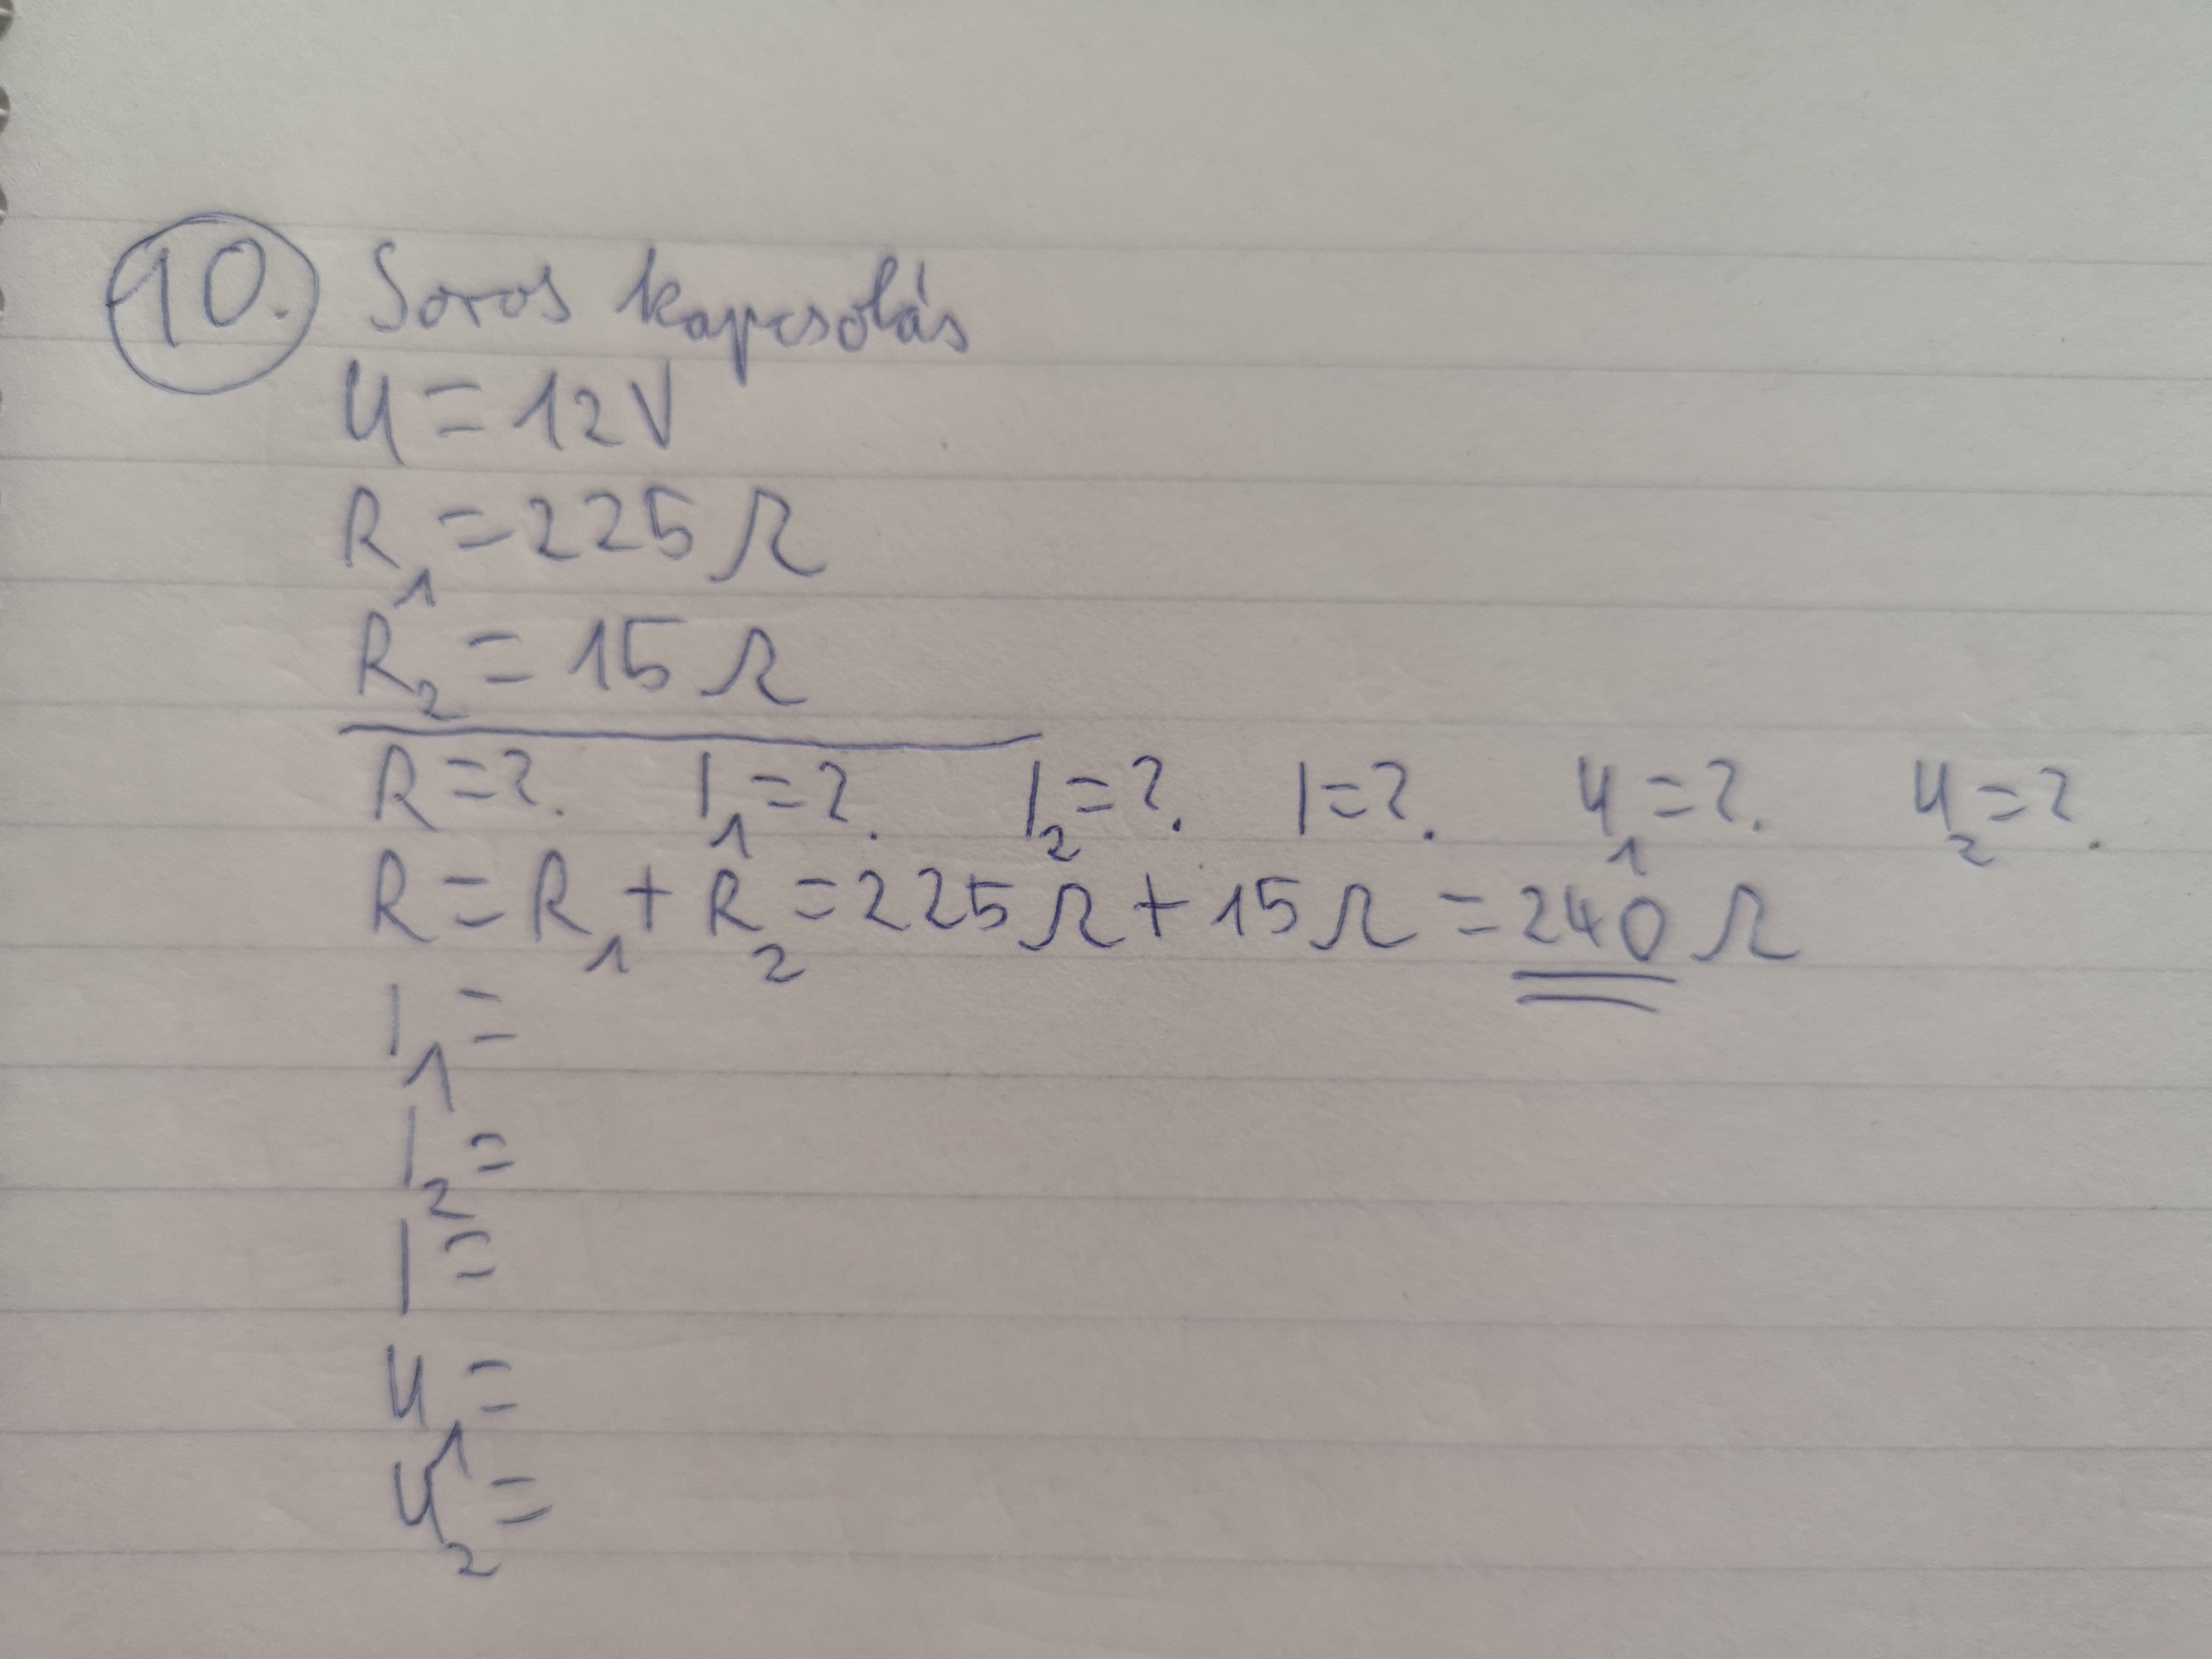 10. Soros kapcsolás
U = 12 V
R₁ = 225 Ω
R₂ = 15 Ω
R = ? I₁ = ? I₂ = ? I = ? U₁ = ? U₂ = ?
R = R₁ + R₂ = 225 Ω + 15 Ω = 240 Ω
I₁ =
I₂ =
I =
U₁ =
U₂ =